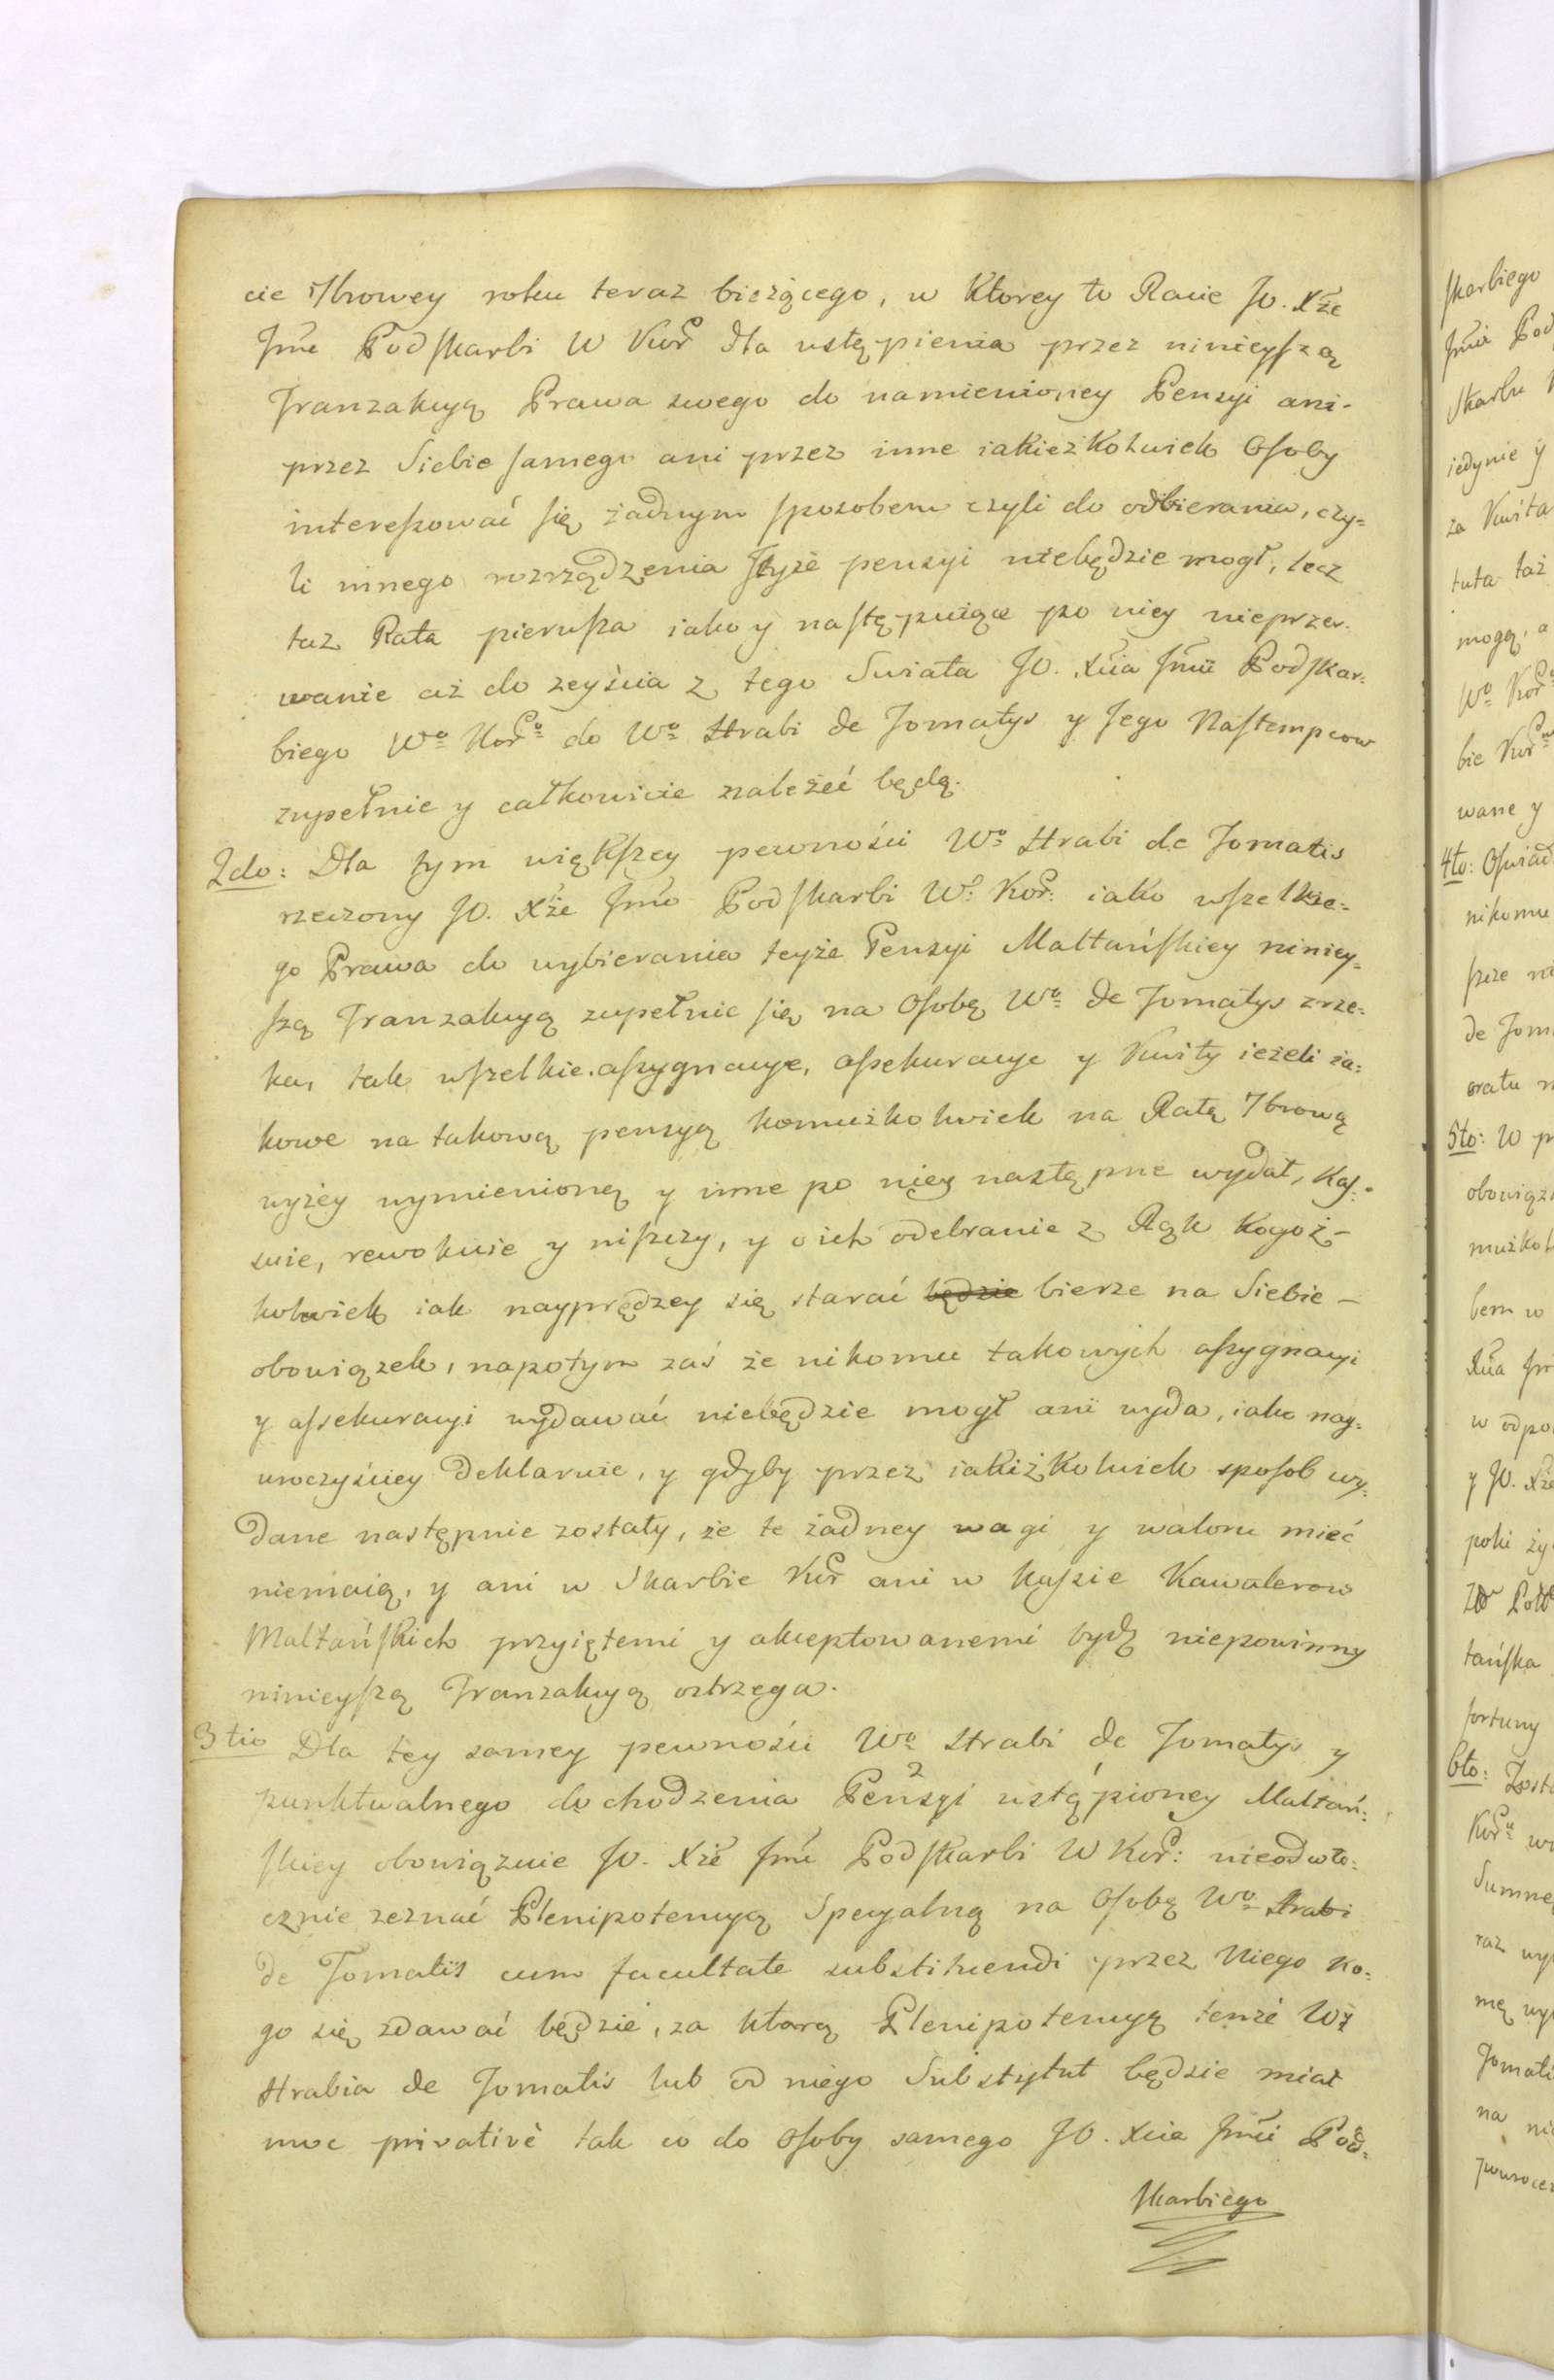 cie 7browey roku teraz bieżącego, w Ktorey to Racie JO. Xże
Jmć Podskarbi W Kor dla ustąpienia przez ninieyszą
Tranzakcyą Prawa swego do namienioney Pensyi ani-
przez Siebie samego ani przez inne iakieżkolwiek Osoby
interessować się żadnym sposobem czyli do odbierania, czy=
li innego rozrządzenia teyże pensyi niebędzie mogł, lecz
taż Rata pierwsza iako y następuiące po niey nieprzer-
wanie aż do zeyścia z tego Swiata JO. Xcia Jmci Podskar=
biego Wo Kor do Wo Hrabi de Tomatys y Jego Nastempcow
zupełnie y całkowicie należéć będą.
2do: Dla tym większey pewności Wo Hrabi de Tomatis
rzeczony JO. Xże Jmć Podskarbi W. Kor: iako wszelkie=
go Prawa do wybierania teyże Pensyi Maltańskiey niniey=
szą Tranzakcyą zupełnie się na Osobę Wo de Tomatys zrze=
ka, tak wszelkie assygnacye, assekuracye y Kwity ieżeli ia=
kowe na takową pensyą komużkolwiek na Ratę 7brową
wyżey wymienioną y inne po niey następne wydał, Kas=
suie, rewokuie y niszczy, y o ich odebranie z Rąk Kogoż-
kolwiek iak nayprędzey się starać będzie bierze na Siebie -
obowiązek, napotym zaś że nikomu takowych assygnacyi
y assekuracyi wydawać niebędzie mogł ani wyda, iako nay=
uroczyściey Deklaruie, y gdyby przez iakiżkolwiek sposob wy=
dane następnie zostały, że te żadney wagi y waloru mieć
niemaią, y ani w Skarbie Kor ani w kassie Kawalerow
Maltańskich przyiętemi y akceptowanemi bydź niepowinny
ninieyszą Tranzakcyą ostrzega.
3tio Dla tey samey pewności Wo Hrabi de Tomatys y
punktualnego dochodzenia Pensyi ustąpioney Maltań=
skiey obowiązuie JO. Xże Jmć Podskarbi W Kor: nieodwło=
cznie zeznać Plenipotencyą Specyalną na Osobę Wo Hrabi
de Tomatis cum facultate substituendi przez Niego ko=
go się zdawać będzie, za ktorą Plenipotencyą tenże W
Hrabia de Tomatis lub od niego Substytut będzie miał
moc privativè tak co do Osoby samego JO. Xcia Jmci Pod=
skarbiego
skarbiego
Jmci Pod
Skarbu
iedynie y
za Kwita
tuta taż
mogą, a
Wo Kor
bie Kor
wane y
4to: Oswiad
nikomu
szcze
de Tom
oratu
5to: W
obowiąz
mużkol
bem w
Xcia
w odpo
y JO. Xże
poki ży
tańska
fortuny
6to: Zost
Kor
Summę
raz wy
mę wy
Tomati
na ni
powroce